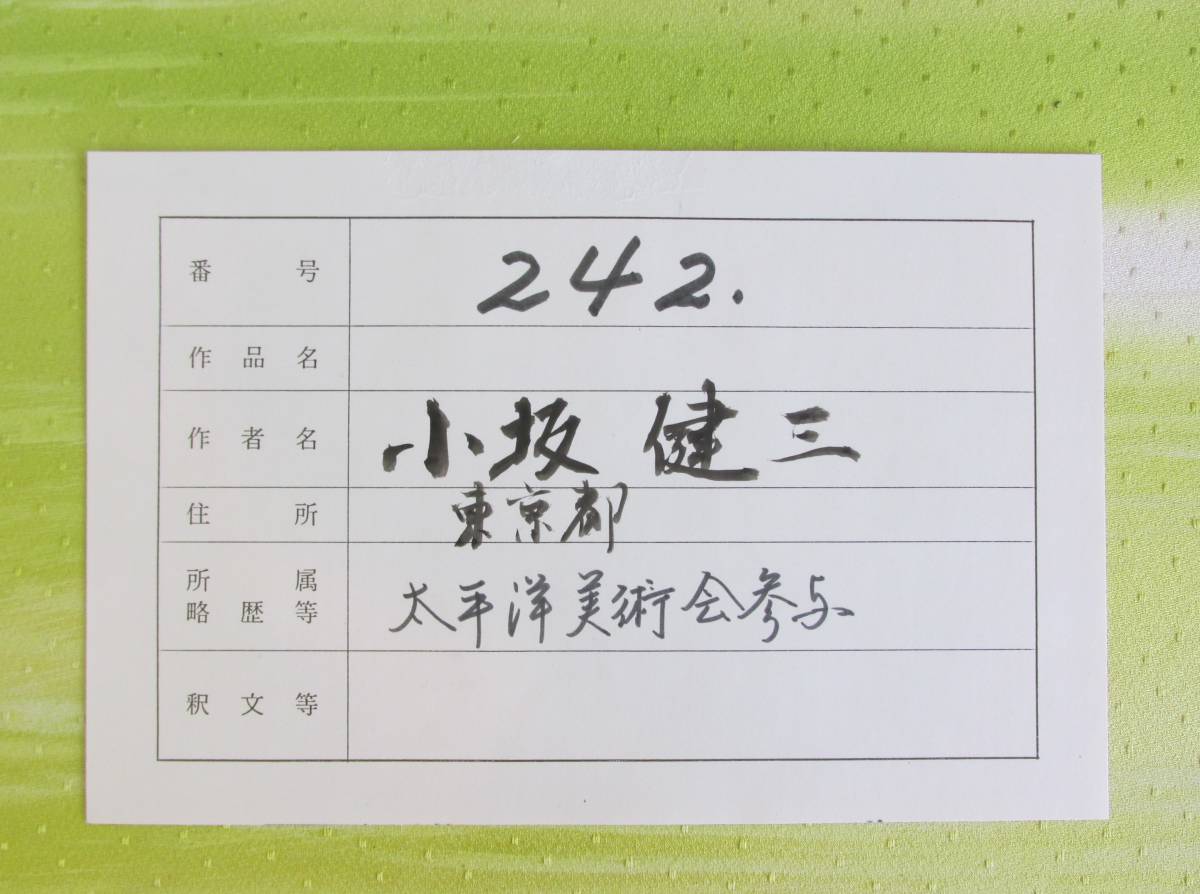 番号 242.
作品名
作者名 小坂 健三
住所 東京都
所属
略歴等 太平洋美術会参与
釈文等